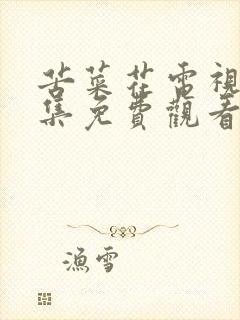 苦菜花電視
集免費觀看
漁雪